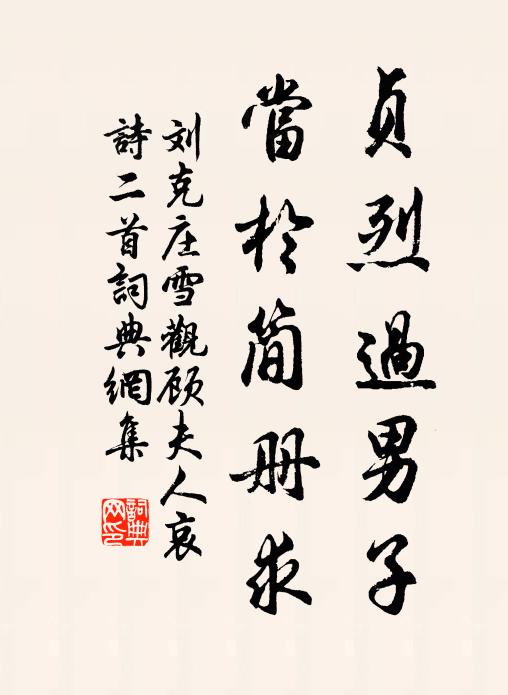 貞烈過男子
當於简册求
刘克庄雪觀顾夫人哀
詩二首詞典網集
詞典
网印